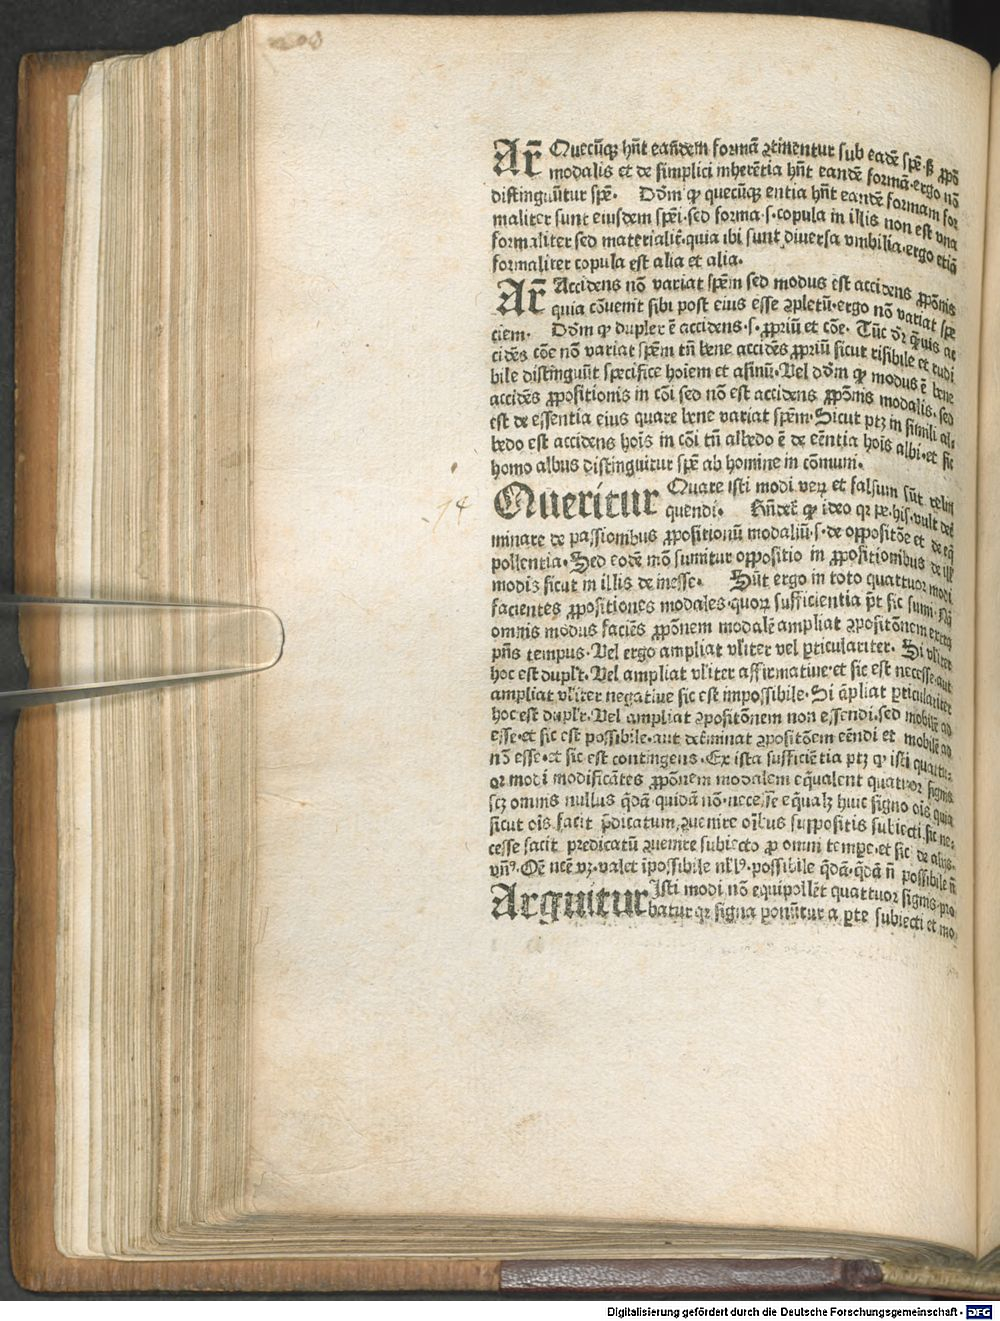 Ar̄ Quecūqꝫ hn̄t eandem formā ꝯtinentur sub eadē spē ß ꝓpō
modalis et de simplici inherētia hn̄t eandē formā·ergo nō
distinguūtur spē· Dōm ꝙ quecūqꝫ entia hn̄t eandē formam for
maliter sunt eiusdem spēi·sed forma·s·copula in illis non est vna
formaliter sed materialiť·quia ibi sunt diuersa vnibilia·ergo etiā
formaliter copula est alia et alia·
Ar̄ Accidens nō variat spēm sed modus est accidens ꝓpōnis
quia cōuenit sibi post eius esse ꝯpletū·ergo nō variat spe
ciem· Dōm ꝙ duplex ē accidens·s·ꝓpriū et cōe· Tūc dr̄ ꝙ̄uis ac
cidēs cōe nō variat spēm tn̄ bene accidēs ꝓpriū sicut risibile et rudi
bile distinguūt specifice hoiem et asinū·Vel dōm ꝙ modus ē bene
accidēs ꝓpositionis in cōi sed nō est accidens ꝓpōnis modalis·sed
est de essentia eius quare bene variat spēm·Sicut ptꝫ in simili al
bedo est accidens hoīs in cōi tn̄ albedo ē de eēntia hoīs albi·et sic
homo albus distinguitur spē ab homine in cōmuni·
Queritur Quare isti modi veꝝ et falsum sūt relin
quendi· Rn̄det̄ ꝙ ideo qꝛ pe·his·vult det̄
minare de passionibus ꝓpositionū modaliū·s·de oppositōe et de eq̄
pollentia·Sed eodē mō sumitur oppositio in ꝓpositionibus de ill'
modis sicut in illis de inesse· Sūt ergo in toto quattuor modi
facientes ꝓpositiones modales·quoꝝ sufficientia p̄t sic sumi·Nā
omnis modus faciēs ꝓpōnem modalē ampliat ꝯpositōnem extra
p̄ns tempus·Vel ergo ampliat vl̄iter vel ꝑticulariter· Si vl̄iter
hoc est dupl'r·Vel ampliat vl̄iter affirmatiue·et sic est necesse·aut
ampliat vl̄iter negatiue sic est impossibile·Si āpliat ꝑticulariter
hoc est dupl'r·Vel ampliat ꝯpositōnem non essendi·sed mobilē ad
esse·et sic est possibile·aut det̄minat ꝯpositōem eēndi et mobilē ad
nō esse·et sic est contingens·Ex ista sufficiētia ptꝫ ꝙ isti quattu⸗
or modi modificātes ꝓpōnem modalem eq̄ualent quatuor signis
scꝫ omnis nullus q̄dā quidā nō·necesse eq̄ualꝫ huic signo oīs quia
sicut oīs facit p̄dicatum ꝯuenire oībus suppositis subiecti·sic ne⸗
cesse facit predicatū ꝯuenire subiecto ꝓ omni tempe·et sic de alijs·
vn̄ꝰ·Oē necē vꝫ·valet īpossibile nl'lꝰ·possibile q̄dā·q̄dā n̄ possibile n̄
Arguitur Isti modi nō equipollēt quattuor signis·pro
batur qꝛ signa ponūtur a ꝑte subiecti et mo
14
Digitalisierung gefördert durch die Deutsche Forschungsgemeinschaft - DFG